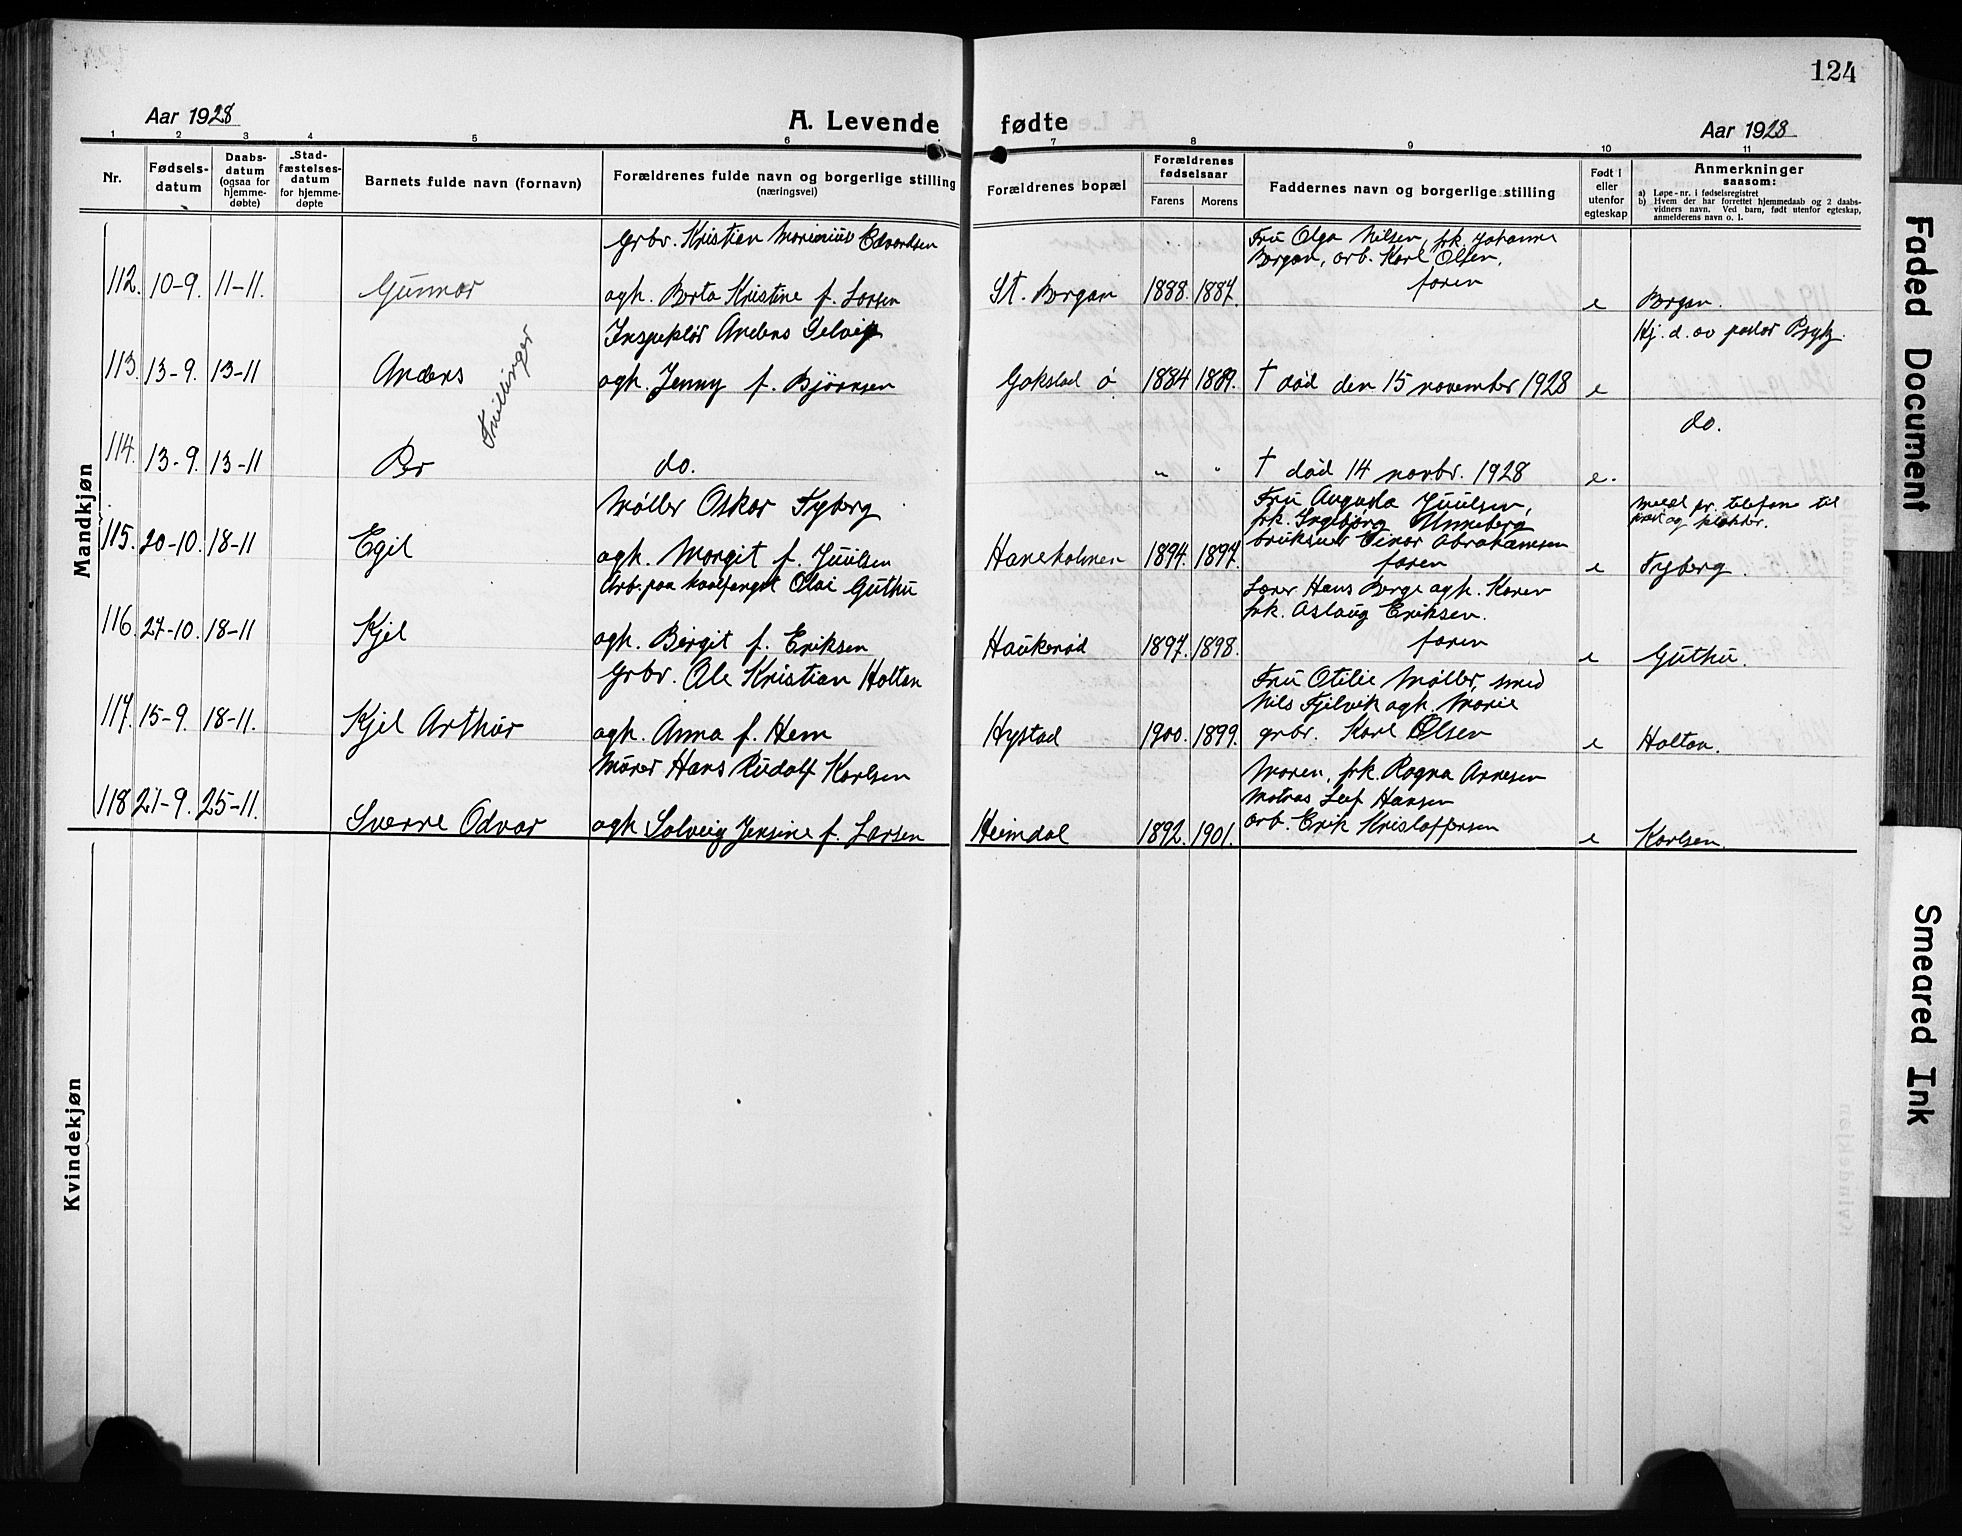 124
Aar 1928
A. Levende fødte
Aar 1928
1 2 3 4 5 6 7 8 9 10 11
Nr.
Fødsels-
datum
Daabs-
datum
(ogsaa for
hjemme-
døbte)
„Stad-
fæstelses-
datum
for hjemme-
døpte
Barnets fulde navn (fornavn)
Forældrenes fulde navn og borgerlige stilling
(næringsvei)
Forældrenes bopæl
Forældrenes
fødselsaar
Farens Morens
Faddernes navn og borgerlige stilling
Født i
eller
utenfor
egteskap
Anmerkninger
saasom:
a) Løpe-nr. i fødselsregistret
b) Hvem der har forrettet hjemmedaab og 2 daabs-
vidners navn. Ved barn, født utenfor egteskap,
anmelderens navn o. l.
Mandkjøn
Grbr. Kristian Marinius Edvardsen
Fru Olga Nilsen, frk. Johanne
Borgan, arb. Karl Olsen,
faren
112. 10-9. 11-11. Gunnar agh. Berta Kristine f. Larsen St. Borgan 1888. 1887. e Borgan.
Inspektør Anders Selvig
Hj. d. av pastor Brytz.
113. 13-9. 13-11 Anders agh. Jenny f. Bjørnsen Gokstad ø 1884 1889. † død den 15 november 1928 e
Tvillinger
do.
114. 13-9. 13-11 Per do. " " † død 14 novbr. 1928 e.
Møller Oskar Fyberg
Fru Augusta Juulsen,
frk. Ingebjørg Unneberg
brukseier Einar Abrahamsen
faren
meld pr. telefon til
prest og klokker.
115. 20-10. 18-11 Egil agh. Margit f. Juulsen Haneholmen 1894. 1897. e Fyberg.
Arb. paa hvalfangst Olai Guthu
Lærer Hans Berge agh. Karen
frk. Aslaug Eriksen.
faren
116. 27-10. 18-11 Kjel agh. Birgit f. Eriksen Haukerød 1897. 1898. e Guthu.
Grbr. Ole Kristian Holtan
Fru Otilie Møller, smed
Nils Fjelvik agh. Marie
grbr. Karl Olsen
117. 15-9. 18-11. Kjel Arthur agh. Anna f. Hem Hystad 1900. 1899. e Holtan.
Murer Hans Rudolf Karlsen
Moren, frk. Ragna Arnesen
Matros Leif Hansen
arb. Erik Kristoffersen
118 27-9. 25-11. Sverre Odvar agh Solveig Jensine f. Larsen Heimdal 1892. 1901. e Karlsen.
Kvindekjøn
Faded Document
Smeared Ink